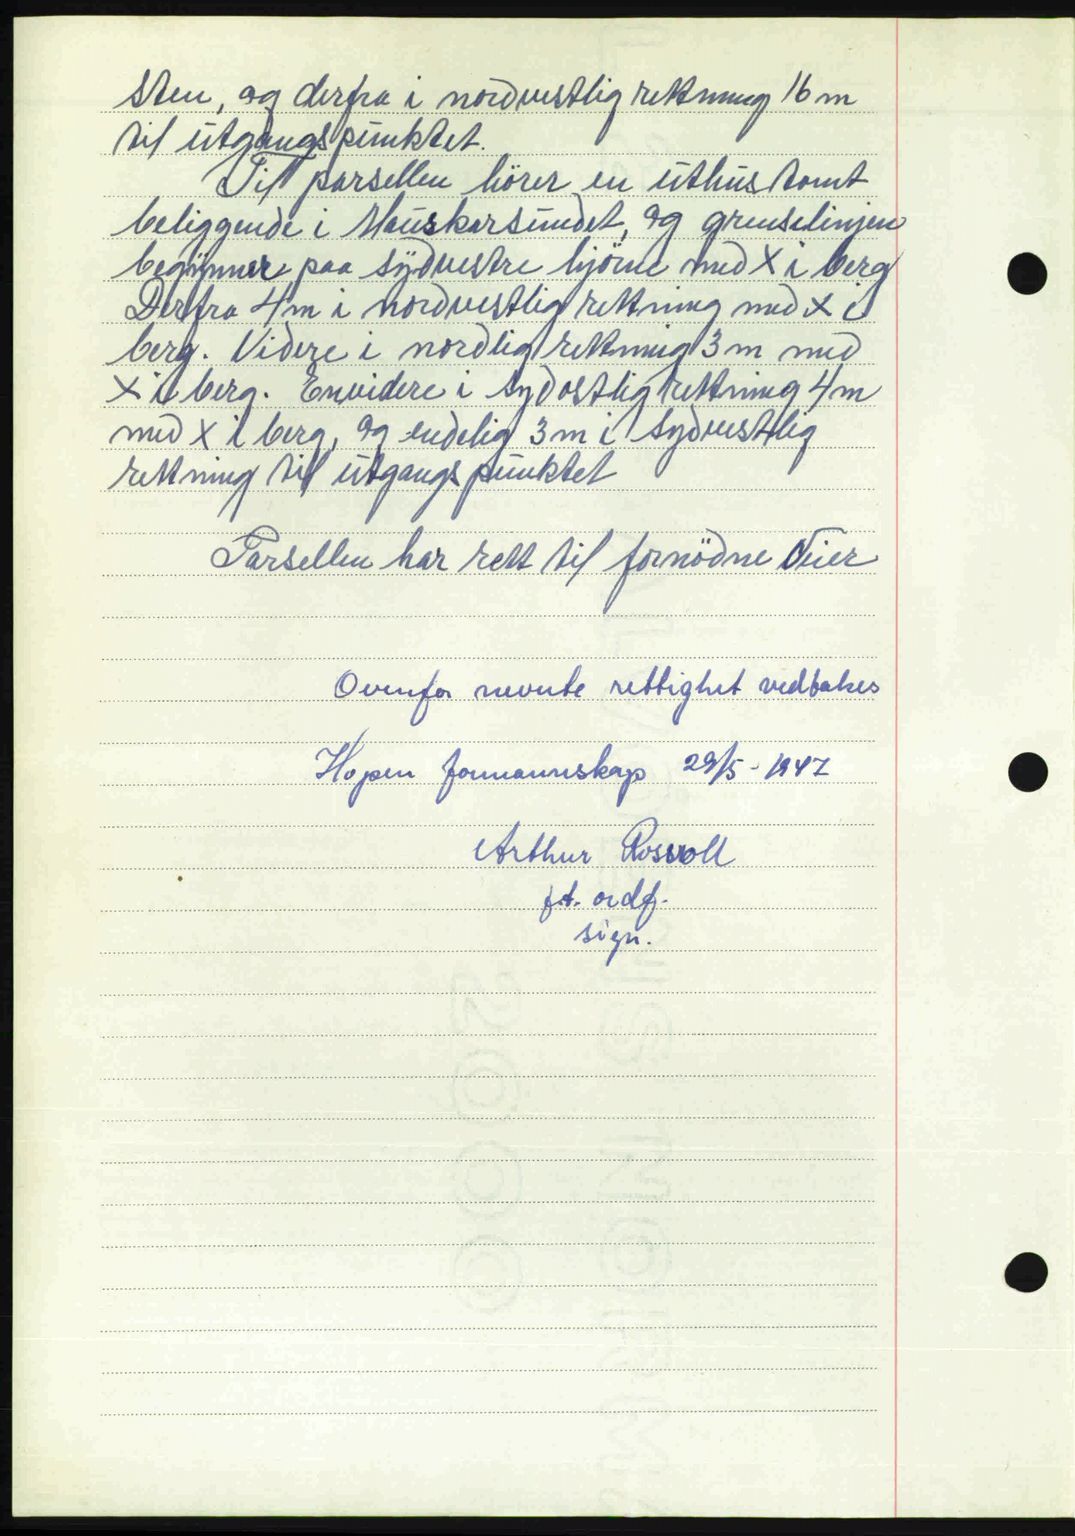 sten, og derfra i nordvestlig rettning 16 m
til utgangspunktet.
Til parsellen hörer en uthustomt
beliggende i Mauskarsundet, og grenselinjen
begynner paa sydvestre hjörne med X i berg
Derfra 4 m i nordvestlig rettning med X i
berg. Videre i nordlig rettning 3 m med
X i berg. Envidere i sydostlig rettning 4 m
med X i berg, og endelig 3 m i sydvestlig
rettning til utgangspunktet
Parsellen har rett til fornödne veier
Ovenfor nevnte rettighet vedtakes
Hopen formannskap 29/5 - 1947
Arthur Rosvoll
f.t. ordf.
sign.